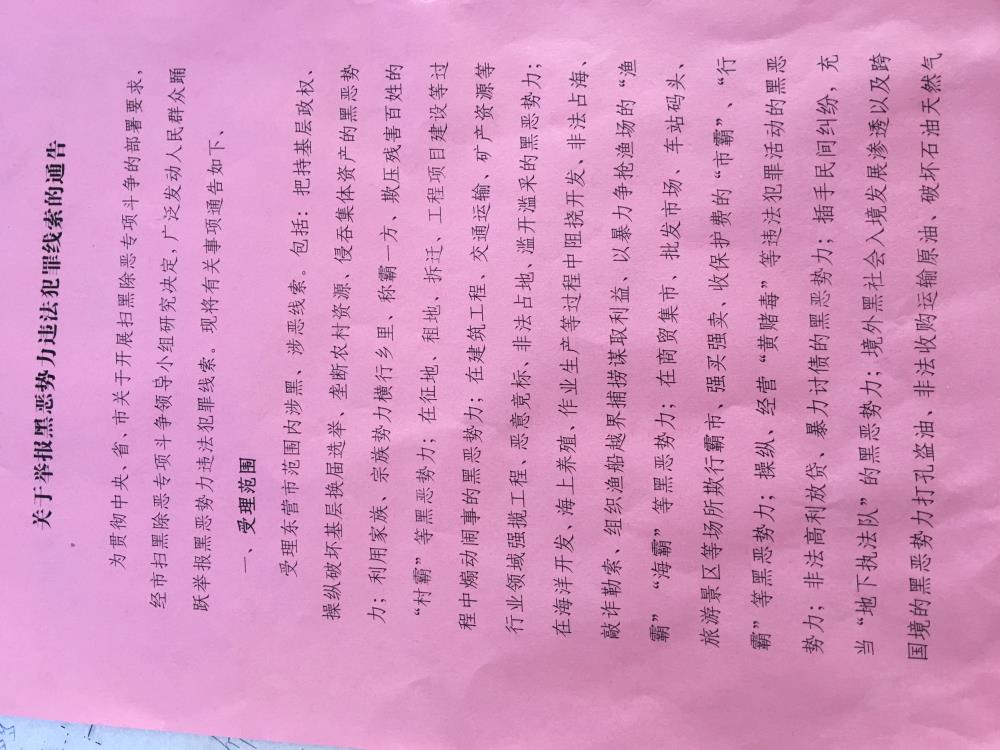 关于举报黑恶势力违法犯罪线索的通告
为贯彻中央、省、市关于开展扫黑除恶专项斗争的部署要求，
经市扫黑除恶专项斗争领导小组研究决定，广泛发动人民群众踊
跃举报黑恶势力违法犯罪线索。现将有关事项通告如下、
一、受理范围
受理东营市范围内涉黑、涉恶线索。包括：把持基层政权、
操纵破坏基层换届选举、垄断农村资源、侵吞集体资产的黑恶势
力；利用家族、宗族势力横行乡里、称霸一方、欺压残害百姓的
“村霸”等黑恶势力；在征地、租地、拆迁、工程项目建设等过
程中煽动闹事的黑恶势力；在建筑工程、交通运输、矿产资源等
行业领域强揽工程、恶意竞标、非法占地、滥开滥采的黑恶势力；
在海洋开发、海上养殖、作业生产等过程中阻挠开发、非法占海、
敲诈勒索、组织渔船越界捕捞谋取利益、以暴力争抢渔场的“渔
霸”“海霸”等黑恶势力；在商贸集市、批发市场、车站码头、
旅游景区等场所欺行霸市、强买强卖、收保护费的“市霸”、“行
霸”等黑恶势力；操纵、经营“黄赌毒”等违法犯罪活动的黑恶
势力；非法高利放贷、暴力讨债的黑恶势力；插手民间纠纷，充
当“地下执法队”的黑恶势力；境外黑社会入境发展渗透以及跨
国境的黑恶势力打孔盗油、非法收购运输原油、破坏石油天然气